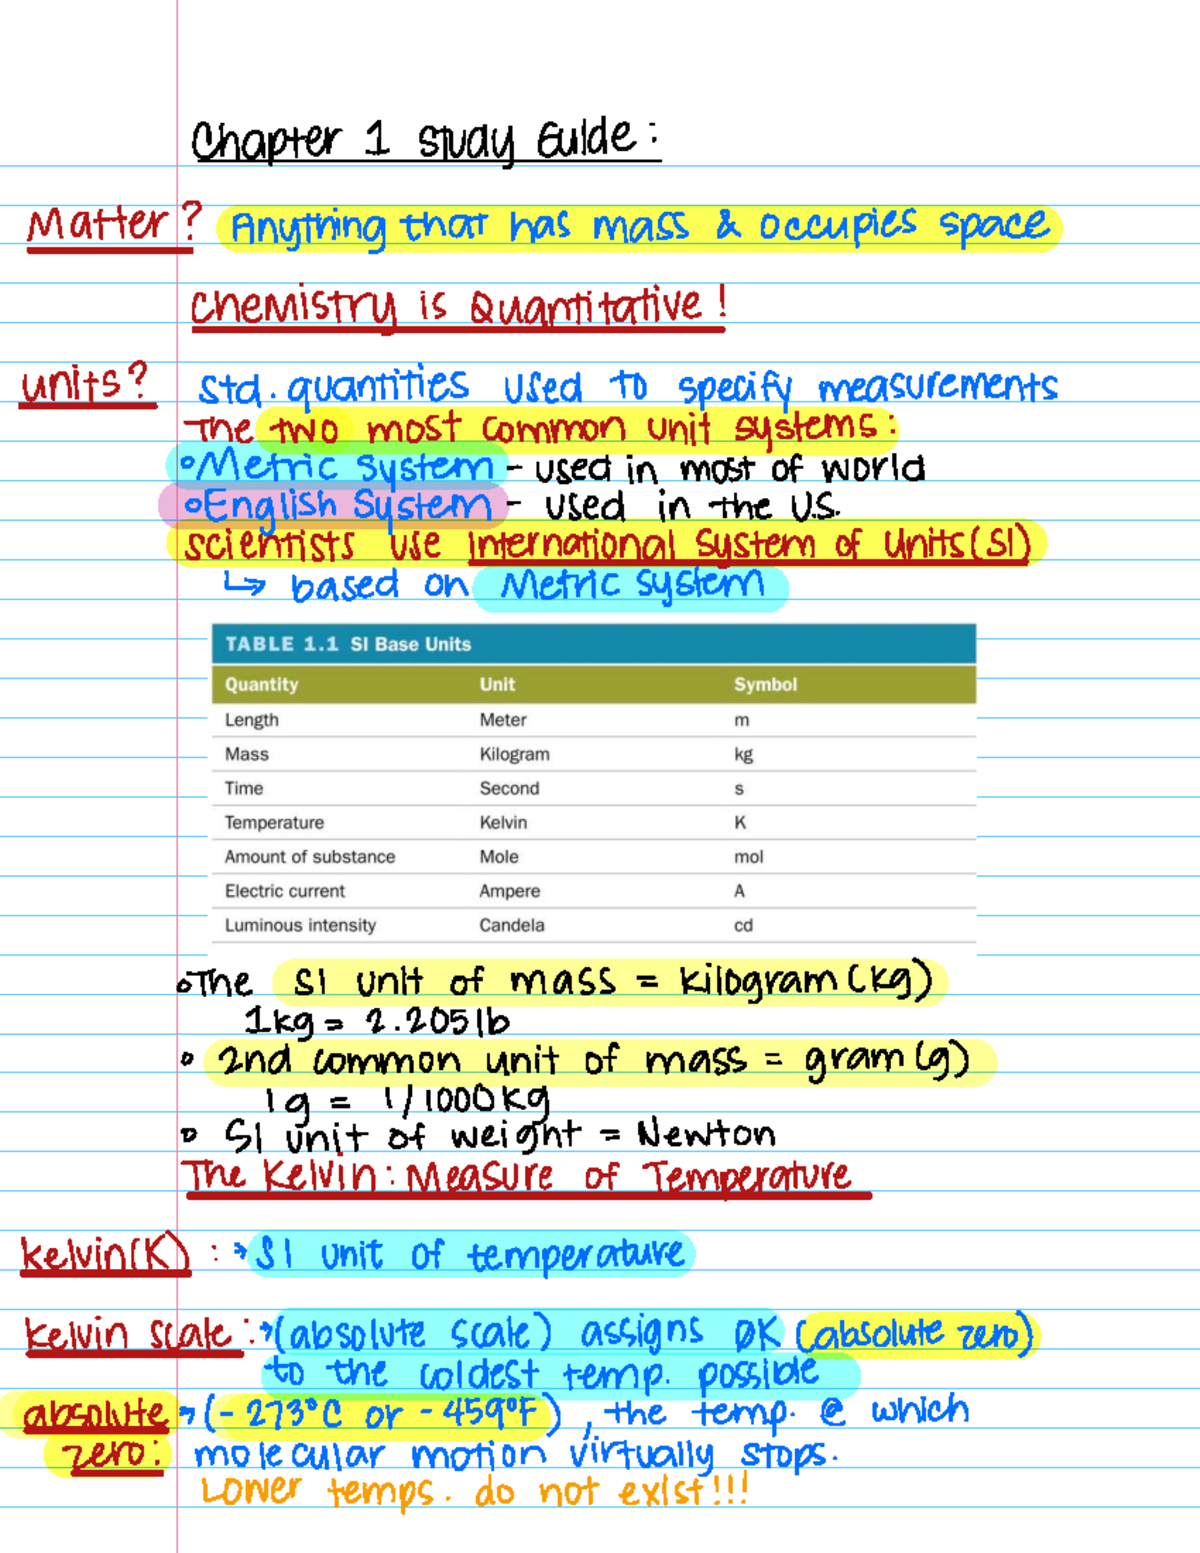 Chapter 1 Study Guide:
Matter? Anything that has mass & occupies space
Chemistry is Quantitative!
units? Std. quantities used to specify measurements
The two most common unit systems:
°Metric System - used in most of world
°English System - used in the U.S.
Scientists use International System of Units (SI)
↳ based on Metric System
TABLE 1.1 SI Base Units
Quantity Unit Symbol
Length Meter m
Mass Kilogram kg
Time Second s
Temperature Kelvin K
Amount of substance Mole mol
Electric current Ampere A
Luminous intensity Candela cd
°The SI unit of mass = kilogram (kg)
1kg = 2.205 lb
° 2nd common unit of mass = gram (g)
1g = 1/1000kg
° SI unit of weight = Newton
The Kelvin: Measure of Temperature
kelvin(K) : → SI unit of temperature
kelvin scale: → (absolute scale) assigns 0K (absolute zero)
to the coldest temp. possible
absolute → (-273°C or -459°F), the temp. @ which
zero: molecular motion virtually stops.
Lower temps. do not exist!!!